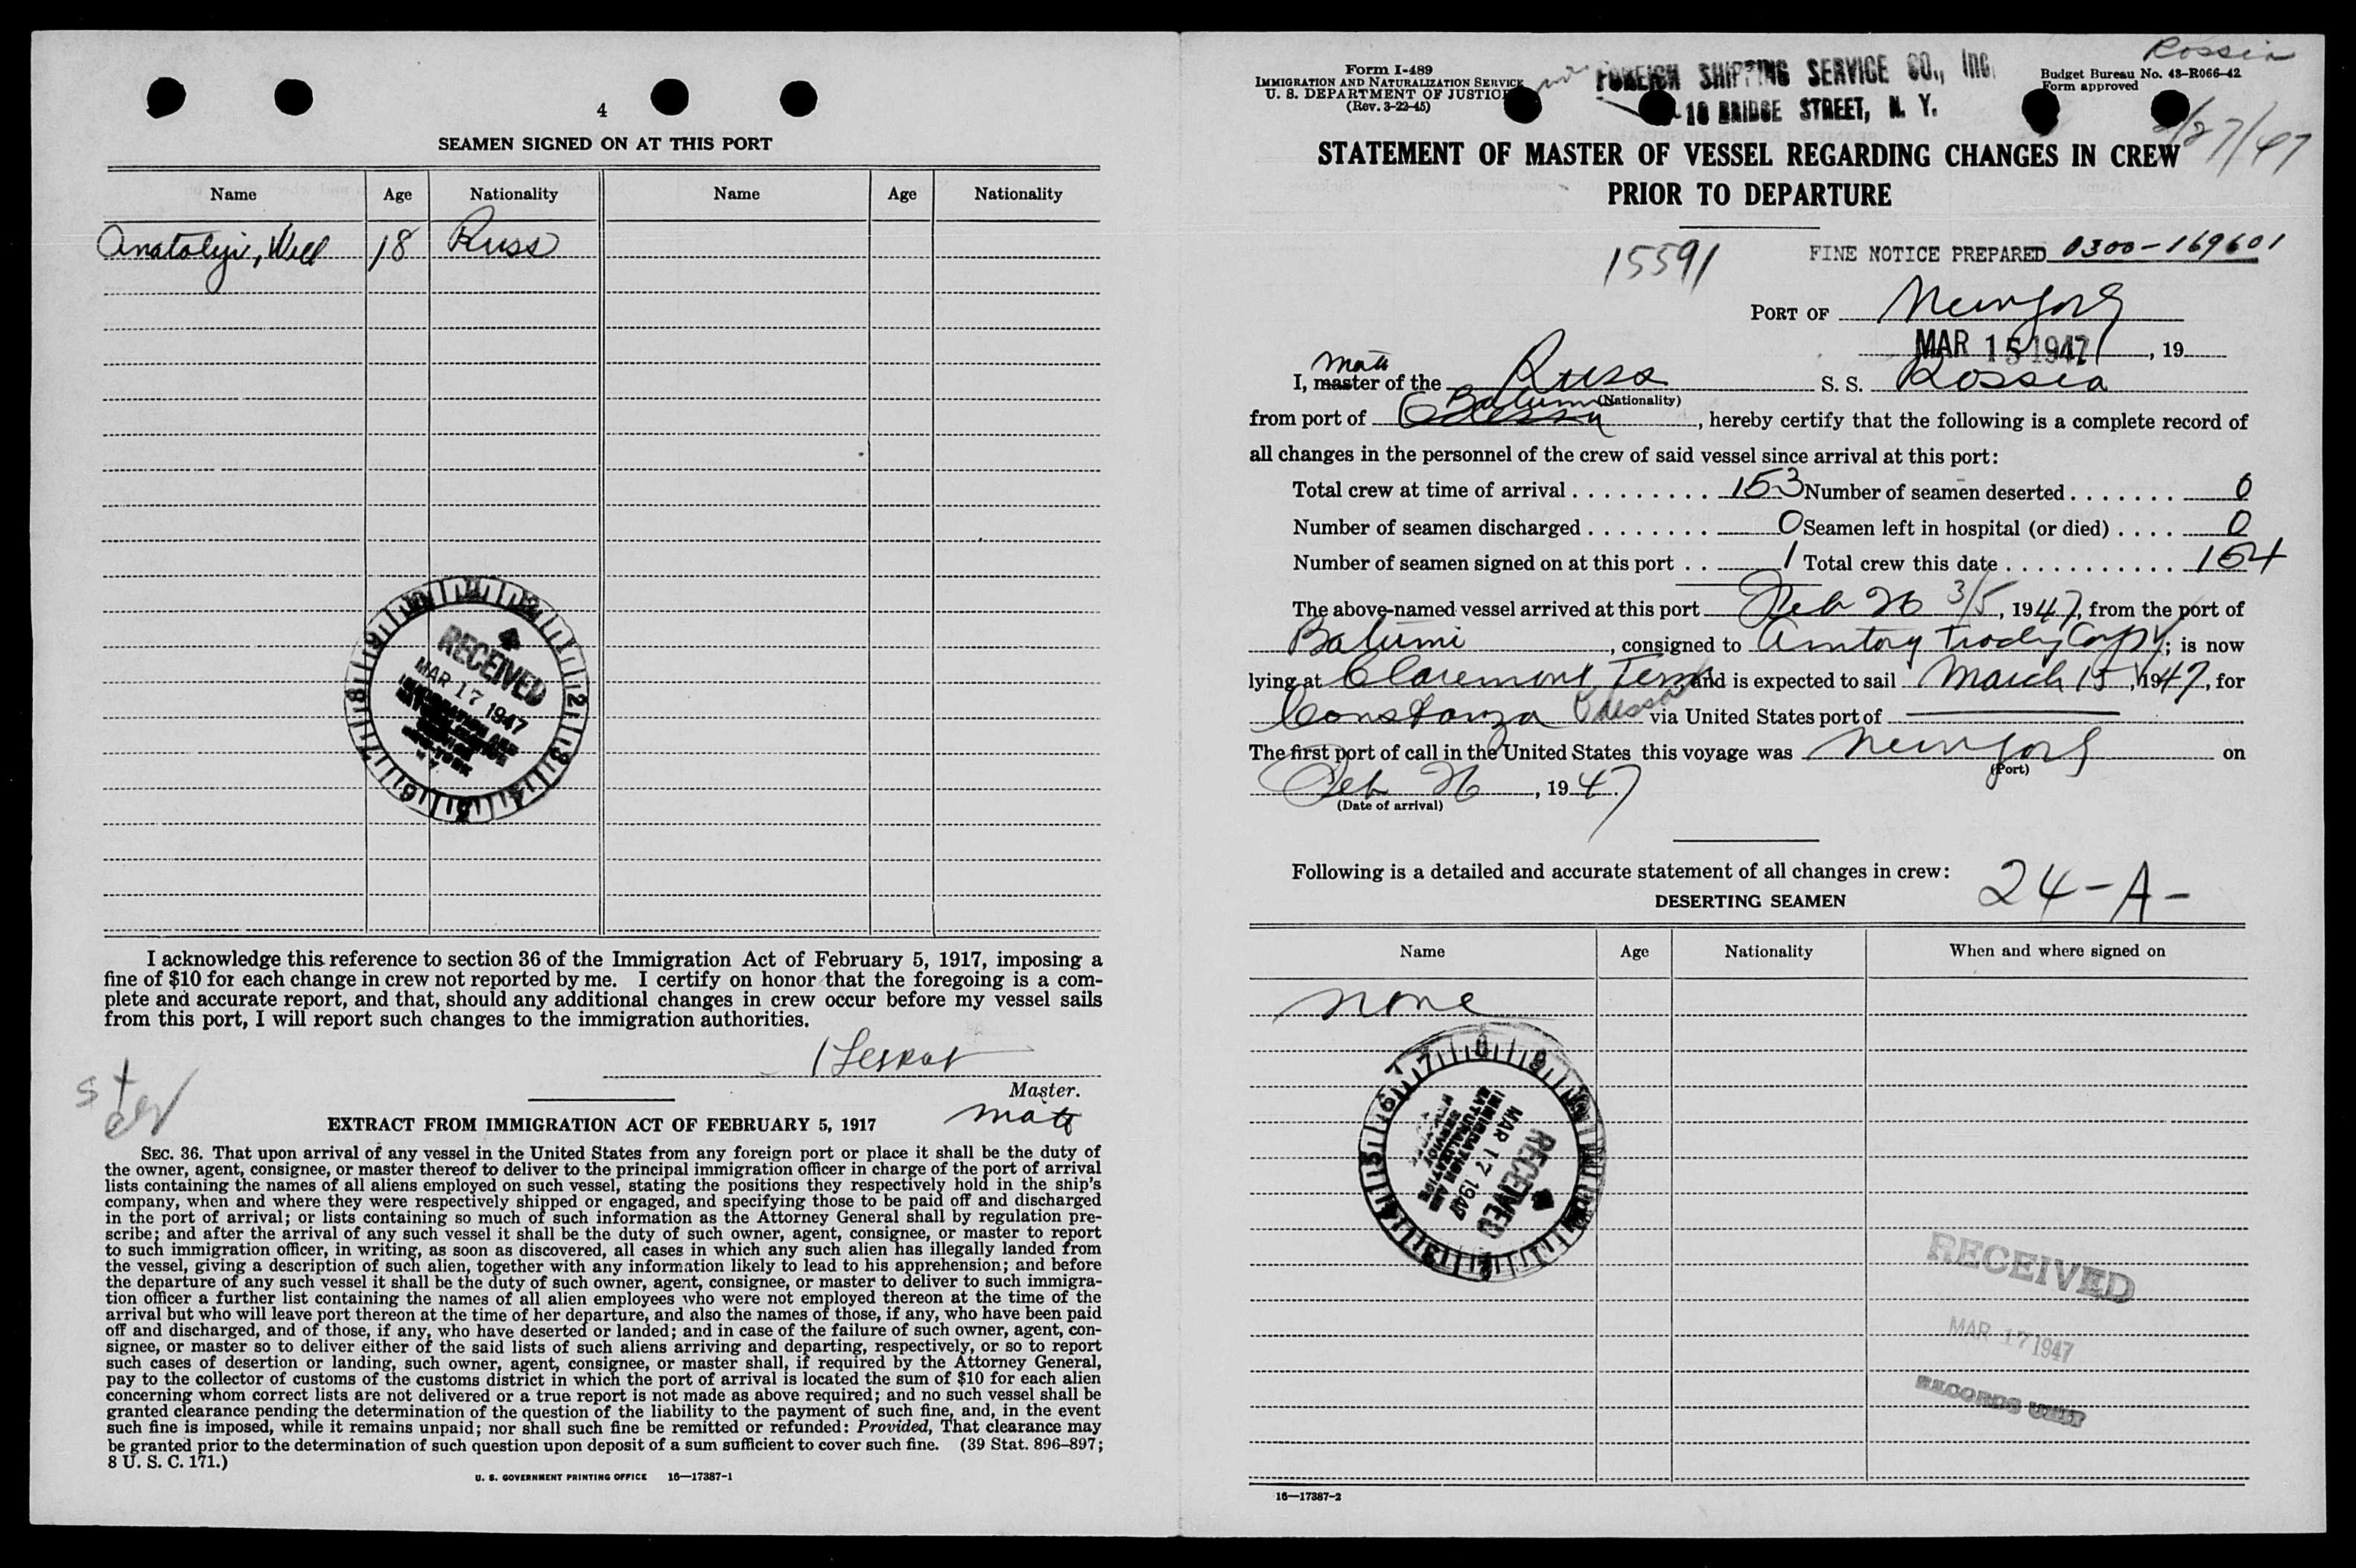 4
SEAMEN SIGNED ON AT THIS PORT
Name Age Nationality Name Age Nationality
Anatolyi, Well 18 Russ
RECEIVED
MAR 17 1947
I acknowledge this reference to section 36 of the Immigration Act of February 5, 1917, imposing a
fine of $10 for each change in crew not reported by me. I certify on honor that the foregoing is a com-
plete and accurate report, and that, should any additional changes in crew occur before my vessel sails
from this port, I will report such changes to the immigration authorities.
Master.
EXTRACT FROM IMMIGRATION ACT OF FEBRUARY 5, 1917
SEC. 36. That upon arrival of any vessel in the United States from any foreign port or place it shall be the duty of
the owner, agent, consignee, or master thereof to deliver to the principal immigration officer in charge of the port of arrival
lists containing the names of all aliens employed on such vessel, stating the positions they respectively hold in the ship's
company, when and where they were respectively shipped or engaged, and specifying those to be paid off and discharged
in the port of arrival; or lists containing so much of such information as the Attorney General shall by regulation pre-
scribe; and after the arrival of any such vessel it shall be the duty of such owner, agent, consignee, or master to report
to such immigration officer, in writing, as soon as discovered, all cases in which any such alien has illegally landed from
the vessel, giving a description of such alien, together with any information likely to lead to his apprehension; and before
the departure of any such vessel it shall be the duty of such owner, agent, consignee, or master to deliver to such immigra-
tion officer a further list containing the names of all alien employees who were not employed thereon at the time of the
arrival but who will leave port thereon at the time of her departure, and also the names of those, if any, who have been paid
off and discharged, and of those, if any, who have deserted or landed; and in case of the failure of such owner, agent, con-
signee, or master so to deliver either of the said lists of such aliens arriving and departing, respectively, or so to report
such cases of desertion or landing, such owner, agent, consignee, or master shall, if required by the Attorney General,
pay to the collector of customs of the customs district in which the port of arrival is located the sum of $10 for each alien
concerning whom correct lists are not delivered or a true report is not made as above required; and no such vessel shall be
granted clearance pending the determination of the question of the liability to the payment of such fine, and, in the event
such fine is imposed, while it remains unpaid; nor shall such fine be remitted or refunded: Provided, That clearance may
be granted prior to the determination of such question upon deposit of a sum sufficient to cover such fine. (39 Stat. 896–897;
8 U. S. C. 171.)
U. S. GOVERNMENT PRINTING OFFICE 16—17387-1
Rossia
Form I-489
IMMIGRATION AND NATURALIZATION SERVICE
U. S. DEPARTMENT OF JUSTICE
(Rev. 3-22-45)
FOREIGN SHIPPING SERVICE CO., INC.
18 BRIDGE STREET, N. Y.
Budget Bureau No. 43-R066-42
Form approved
2/27/47
STATEMENT OF MASTER OF VESSEL REGARDING CHANGES IN CREW
PRIOR TO DEPARTURE
15591
FINE NOTICE PREPARED 0300-169601
PORT OF New York
MAR 15 1947, 19
I, master of the Russ S. S. Rossia
(Nationality)
from port of Odessa Batumi, hereby certify that the following is a complete record of
all changes in the personnel of the crew of said vessel since arrival at this port:
Total crew at time of arrival 153 Number of seamen deserted 0
Number of seamen discharged 0 Seamen left in hospital (or died) 0
Number of seamen signed on at this port 1 Total crew this date 154
The above-named vessel arrived at this port Feb 26 3/5, 1947, from the port of
Batumi, consigned to Amtorg Trading Corp; is now
lying at Claremont Term and is expected to sail March 15, 1947, for
Constanza Odessa via United States port of
The first port of call in the United States this voyage was New York on
(Port)
Feb 26, 1947
(Date of arrival)
Following is a detailed and accurate statement of all changes in crew:
24-A-
DESERTING SEAMEN
Name Age Nationality When and where signed on
none
RECEIVED
MAR 17 1947
IMMIGRATION AND
NATURALIZATION
SERVICE
RECEIVED
MAR 17 1947
RECORDS UNIT
16—17387-2